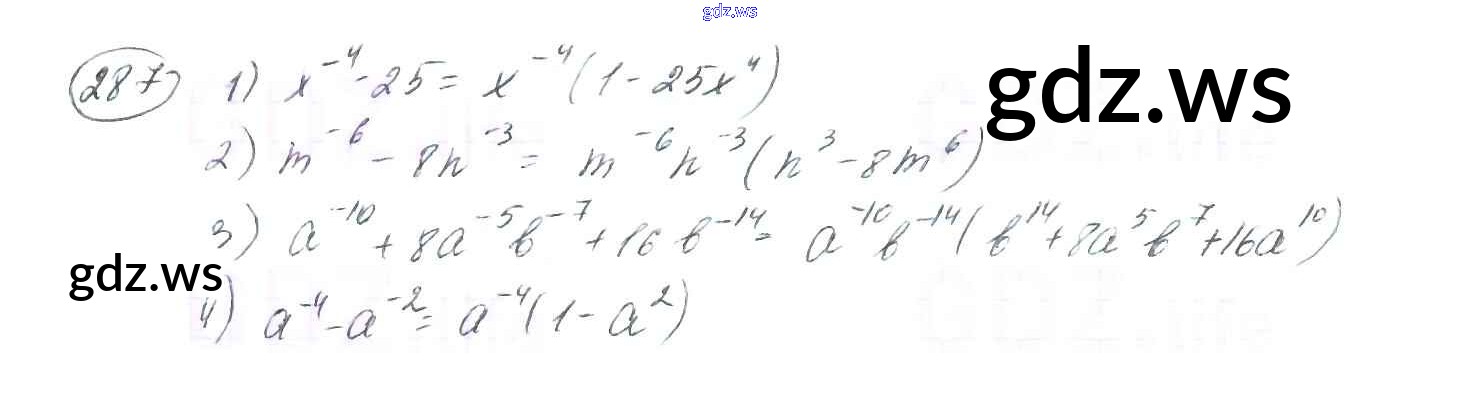 gdz.ws
287 1) x⁻⁴ - 25 = x⁻⁴(1 - 25x⁴)
gdz.ws
2) m⁻⁶ - 8n⁻³ = m⁻⁶n⁻³(n³ - 8m⁶)
3) a⁻¹⁰ + 8a⁻⁵b⁻⁷ + 16b⁻¹⁴ = a⁻¹⁰b⁻¹⁴(b¹⁴ + 8a⁵b⁷ + 16a¹⁰)
gdz.ws
4) a⁻⁴ - a⁻² = a⁻⁴(1 - a²)